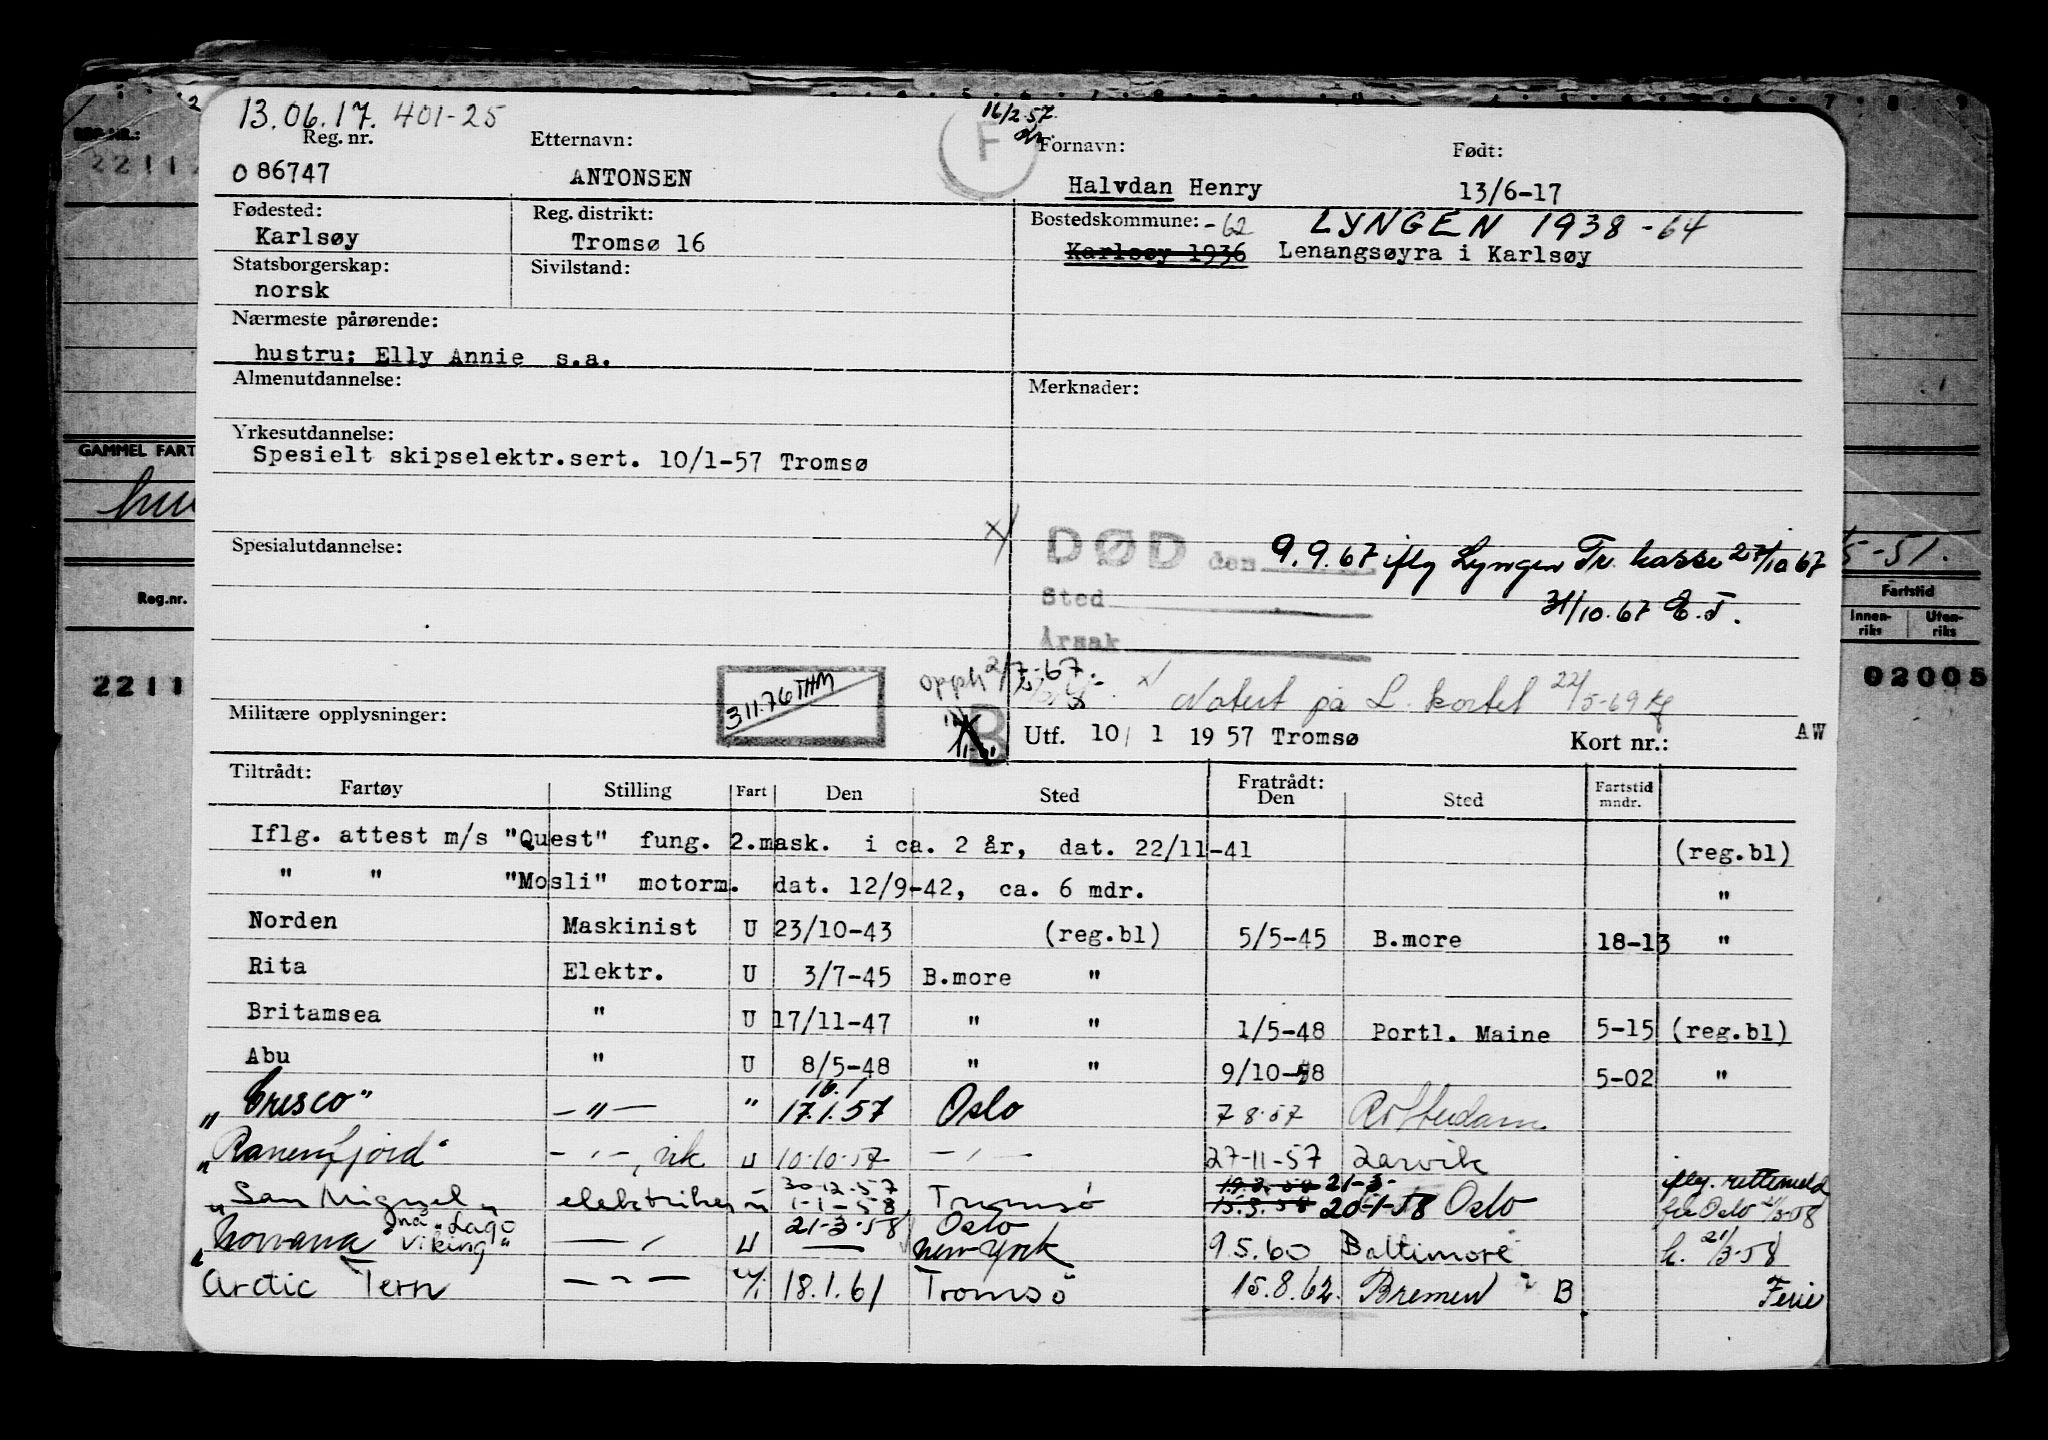 13.06.17. 401-25
16/2.57.
Reg. nr. Etternavn: F Fornavn: Født:
086747 ANTONSEN Halvdan Henry 13/6-17
Fødested: Reg. distrikt: Bostedskommune: -62 LYNGEN 1938-64
Karlsøy Tromsø 16 Karlsøy 1936 Lenangsøyra i Karlsøy
Statsborgerskap: Sivilstand:
norsk
Nærmeste pårørende:
hustru: Elly Annie s.a.
Almenutdannelse: Merknader:
Yrkesutdannelse:
Spesielt skipselektr.sert. 10/1-57 Tromsø
Spesialutdannelse: DØD den 9.9.67 iflg Lyngen Tr. kasse 27/10 67
Sted 31/10.67 E.T.
Årsak
31176 THM opph 2/7-67.
Notert på L. kortet 22/5-69
Militære opplysninger: B Utf. 10/1 1957 Tromsø Kort nr.: AW
Tiltrådt: Fratrådt:
Fartøy Stilling Fart Den Sted Den Sted Fartstid mndr.
Iflg. attest m/s "Quest" fung. 2.mask. i ca. 2 år, dat. 22/11-41 (reg.bl)
" " "Mosli" motorm. dat. 12/9-42, ca. 6 mdr. "
Norden Maskinist U 23/10-43 (reg.bl) 5/5-45 B.more 18-13 "
Rita Elektr. U 3/7-45 B.more "
Britamsea " U 17/11-47 " " 1/5-48 Portl. Maine 5-15 (reg.bl)
Abu " U 8/5-48 " " 9/10-48 5-02 "
16.1
"Cresco" -"- " 17.1.57 Oslo 7 8.57 Rotterdam
"Ranenfjord" -"-, vik U 10-10-57 -"- 27-11-57 Larvik
30-12-57 19.3.58 21-3- iflg. rettemeld
"San Miguel" elektriker U 1-1-58 Tromsø 15.3.58 20-1-58 Oslo fra Oslo 21/3-58
nå "Lago Viking" 21-3-58 Oslo
"Norvana -"- U New York 9 5.60 Baltimore 21/3-58
Arctic Tern -"- U 18.1.61 Tromsø 15.8.62. Bremen B Ferie
REG.NR.:
2211
GAMMEL FART
Reg.nr.
2211
5-51.
Fartstid
Innen-riks Uten-riks
02005